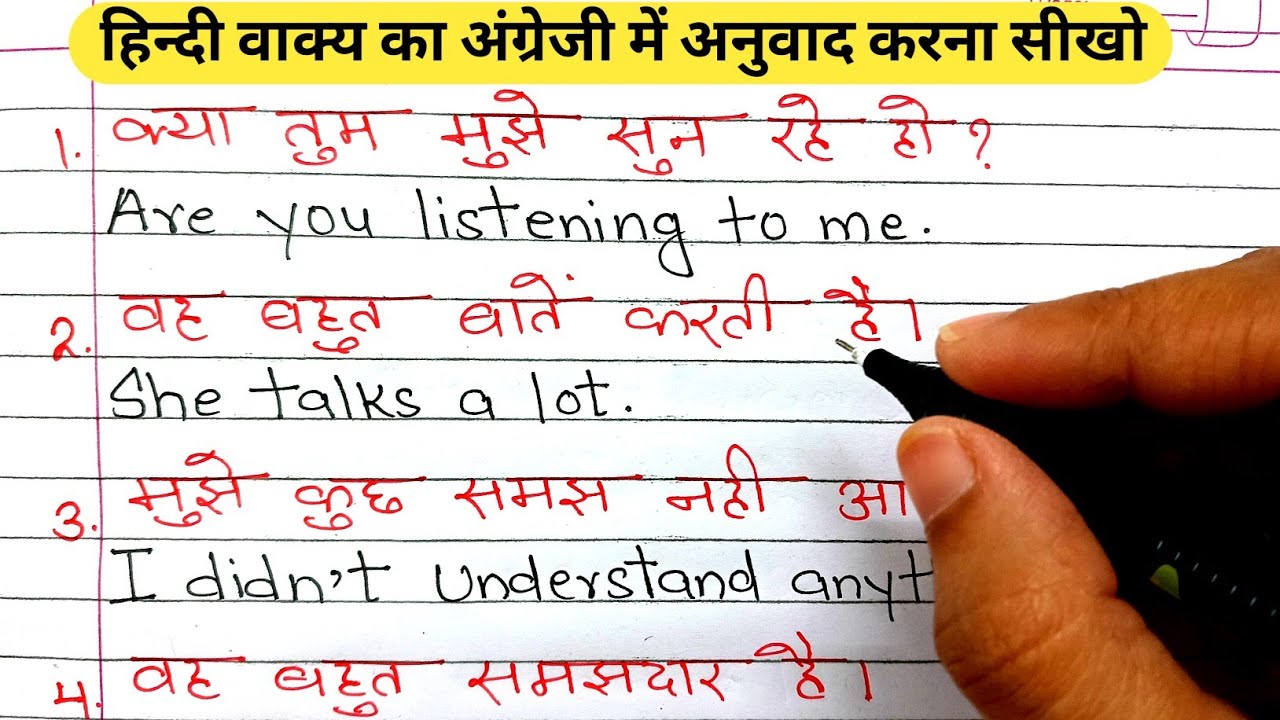 हिन्दी वाक्य का अंग्रेजी में अनुवाद करना सीखो
1. क्या तुम मुझे सुन रहे हो?
Are you listening to me.
2. वह बहुत बातें करती है।
She talks a lot.
3. मुझे कुछ समझ नही आ
I didn't understand anyt
4. वह बहुत समझदार है।